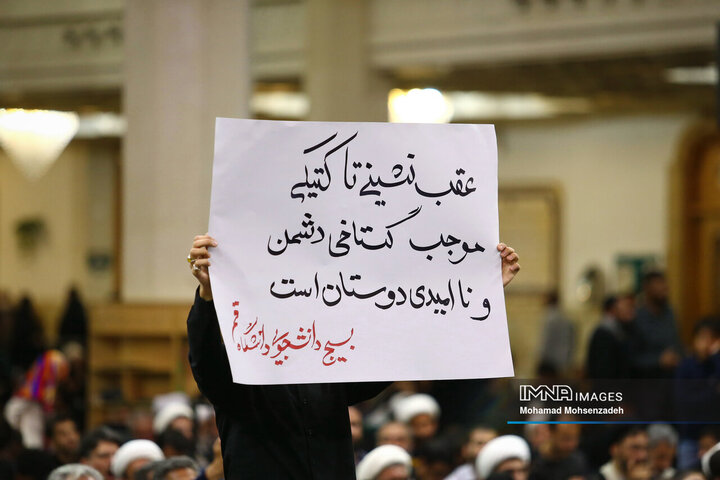 عقب نشینی تاکتیکی
موجب گستاخی دشمن
و نا امیدی دوستان است
بسیج دانشجویی دانشگاه قم
IMNA IMAGES
Mohamad Mohsenzadeh